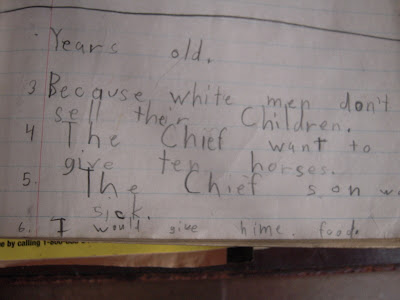 Years old.
3 Because white men don't
sell their Children.
4 The Chief want to
give ten horses.
5. The Chief son
sick.
6. I would give hime food.
e by calling